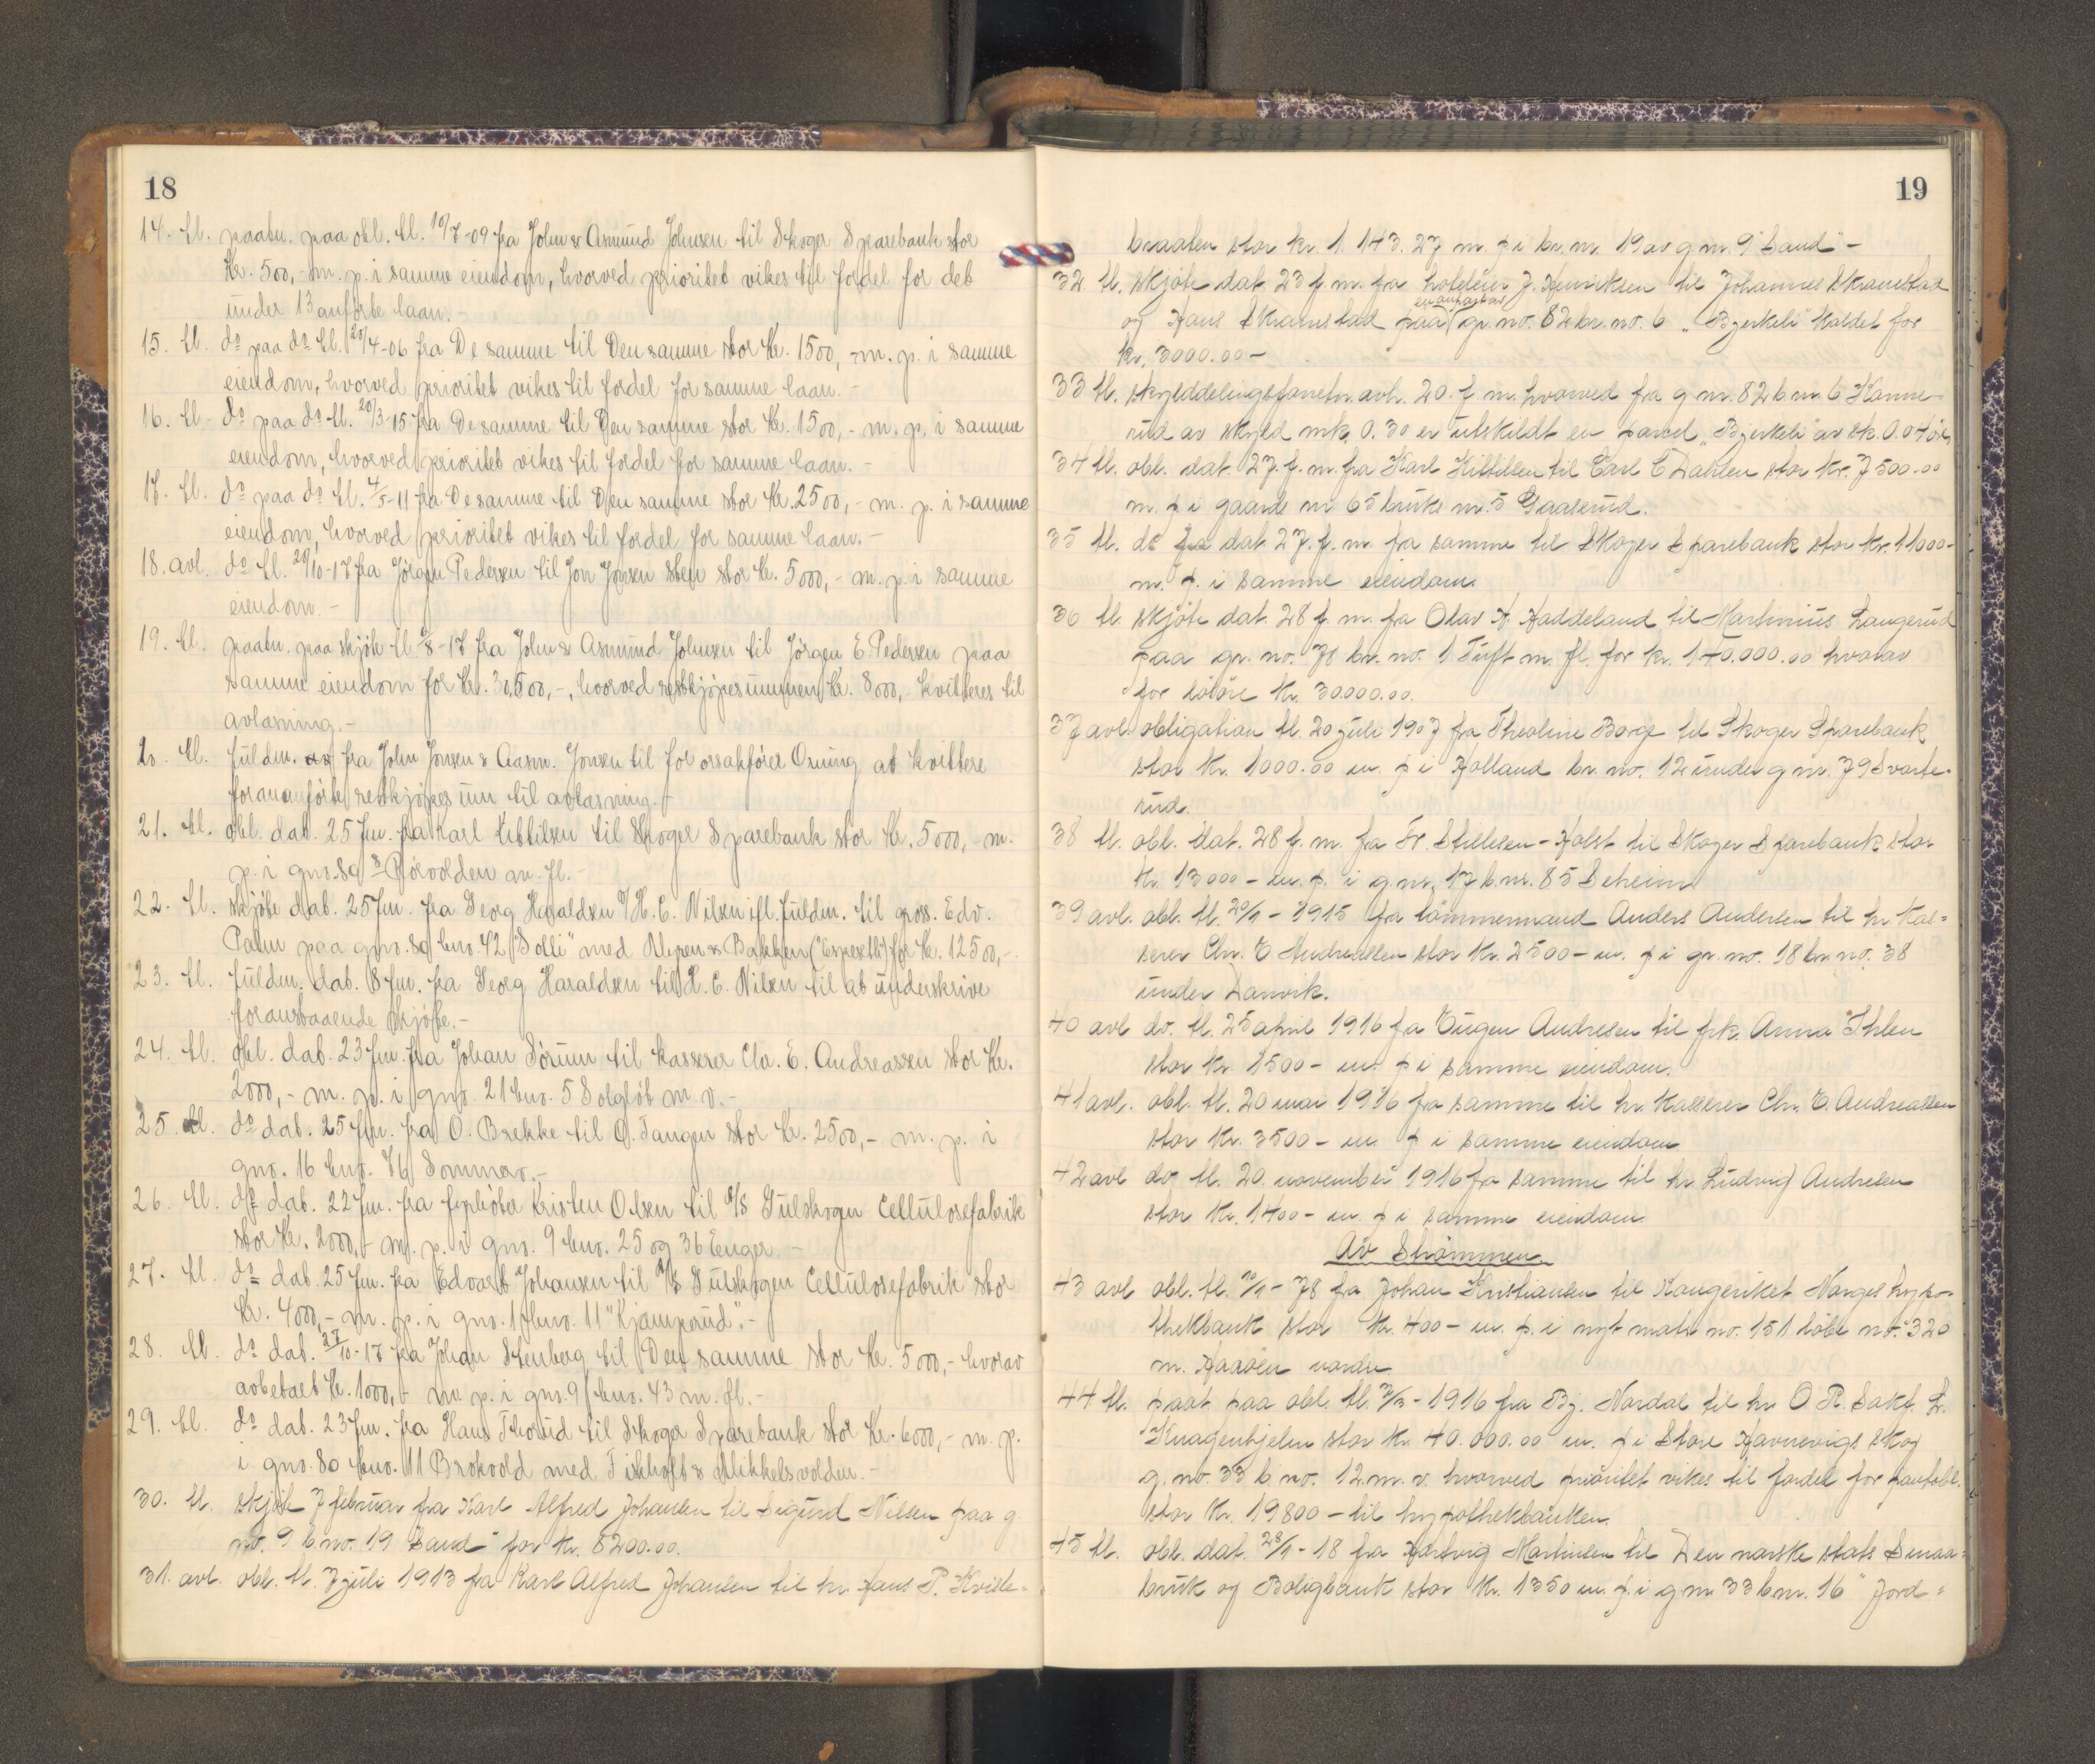 18
14. tl. paatn. paa obl. tl. 10/7-09 fra John & Asmund Johnsen til Skoger Sparebank stor
Kr. 500,- m. p. i samme eiendom, hvorved prioritet vikes til fordel for det
under 13 anførte laan. -
15. tl. do paa do tl. 20/4-06 fra De samme til Den samme stor Kr. 1500,- m. p. i samme
eiendom, hvorved prioritet vikes til fordel for samme laan. -
16. tl. do paa do tl. 20/3-15 fra De samme til Den samme stor Kr. 1500,- m. p. i samme
eiendom, hvorved prioritet vikes til fordel for samme laan. -
17. tl. do paa do tl. 4/5-11 fra De samme til Den samme stor Kr. 2500,- m. p. i samme
eiendom, hvorved prioritet vikes til fordel for samme laan. -
18. avl. do tl. 20/10-17 fra Jörgen Pedersen til Jon Jonsen Steen stor Kr. 5000,- m. p. i samme
eiendom. -
19. tl. paatn. paa skjöte tl. /8-17 fra John & Asmund Johnsen til Jörgen E. Pedersen paa
samme eiendom for Kr. 30,500,-, hvorved restkjöpesummen Kr. 8000,- kvitteres til
avlæsning. -
20. tl. fuldm. fra John Jonsen & Aasm. Jonsen til for orsakförer Orning at kvittere
forananförte restkjöpesum til avlæsning. -
21. tl. obl. dat. 25 f.m. fra Karl Kittilsen til Skoger Sparebank stor Kr. 5000,- m.
p. i gno. 89 Rörvolden m. fl. -
22. tl. skjöte dat. 25 f.m. fra Georg Haraldsen v/ H. C. Nilsen ifl. fuldm. til gross. Edv.
Palm paa gno. 89 bno. 42 "Solli" med Nypen & Bakken for Kr. 12500,-
23. tl. fuldm. dat. 8 f.m. fra Georg Haraldsen til H. C. Nilsen til at underskrive
foranstaaende skjöte. -
24. tl. obl. dat. 23 f.m. fra Johan Sörum til kasserer Chr. E. Andreassen stor Kr.
2000,- m. p. i gno. 21 bno. 5 Solgløt m. v. -
25. tl. do dat. 25 f.m. fra O. Brekke til O. Tangen stor Kr. 2500,- m. p. i
gno. 16 bno. 76 Sommero. -
26. tl. do dat. 22 f.m. fra Kristen Olsen til A/S Gulskogen Cellulosefabrik
stor Kr. 2000,- m. p. i gno. 9 bno. 25 og 36 Enger. -
27. tl. do dat. 25 f.m. fra Edvart Johansen til A/S Gulskogen Cellulosefabrik stor
Kr. 4000,- m. p. i gno. 1 bno. 11 "Kjamperud". -
28. tl. do dat. 27/10-17 fra Johan Stenberg til Den samme stor Kr. 5000,- hvorav
avbetalt Kr. 1000,- m. p. i gno. 9 bno. 43 m. fl. -
29. tl. do dat. 23 f.m. fra Hans Thorud til Skoger Sparebank stor Kr. 6000,- m. p.
i gno. 80 bno. 11 Brokvold med Fiskholt & Mikkelsvolden. -
30. tl. skjöte 7 februar fra Karl Alfred Johansen til Sigurd Nilsen paa g.
no. 9 b.no. 19 "Sand" for kr. 8200.00.
31. avl. obl. tl. 7 juli 1913 fra Karl Alfred Johansen til hr Hans P. Kviste=
19
braaten stor kr. 1.143.27 m. p. i br. nr. 19 av g nr. 9 "Sand" -
32 tl. skjöte dat. 23 f. m. fra hoteleier J. Henriksen til Johannes Skramstad
og Hans Skramstad paa en anpart av gr. no. 82 br. no. 6 "Bjerkeli" kaldet for
kr. 3000.00 -
33 tl. skylddelingsforretn. avh. 20. f. m. hvorved fra g nr. 82 b nr. 6 Konne-
rud av skyld mk. 0.30 er utskildt en parcel "Bjerkeli" av sk. 0.04 øre
34 tl. obl. dat. 27. f. m. fra Karl Kittilsen til Carl E Dahlen stor kr. 7500.00
m. p i gaards nr 65 bruks nr. 5 Gaaserud.
35 tl. do dat 27. f. m. fra samme til Skoger Sparebank stor kr. 11000-
m. p. i samme eiendom.
36 tl skjöte dat. 28 f. m. fra Olav H. Haddeland til Marthinius Langerud
paa gr. no. 78 br. no. 1 Tuft m. fl. for kr. 140.000.00 hvorav
for lösöre kr. 30.000.00.
37 avl. obligation tl. 20 juli 1907 fra Theoline Borge til Skoger Sparebank
stor kr. 1000.00 m. p i Holland br. no. 12 under g nr. 79 Svarte-
rud.
38 tl. obl. dat. 28 f. m. fra Fr. Stillesen-Holst til Skoger Sparebank stor
kr. 13000 - m. p. i g nr. 17 b. nr. 85 Seheim
39 avl. obl. tl. 20/1-1915 fra tömmermand Anders Andersen til hr. kas=
serer Chr. E Andreassen stor kr. 2500 - m. p i gr. no. 18 br. no. 38
under Danvik.
40 avl do. tl. 25 april 1916 fra Eugen Andresen til frk. Anna Ihlen
stor kr. 1500 - m. p i samme eiendom.
41 avl. obl. tl. 20 mai 1916 fra samme til hr. kasserer Chr. E. Andreassen
stor kr. 3500 - m. p i samme eiendom
42 avl do tl. 20. november 1916 fra samme til hr. Ludvig Andresen
stor kr. 1400 - m. p i samme eiendom.
Av Strömmen
43 avl obl. tl. 20/1-78 fra Johan Kristiansen til Kongeriket Norges hypo-
thekbank stor kr. 400 - m. p. i nyt matr. no. 151 löbe no. 320
m. Haasen nordre
44 tl. paat. paa obl. tl. 7/3-1916 fra Bj. Nordal til hr O. R. Sakf. L.
Knagenhjelm stor kr 40.000.00 m. p i Store Havnevigs skog
g. no. 33 b. no. 12 m. v. hvorved prioritet vikes til fordel for pantobl.
stor kr. 19800 - til hypothekbanken.
45 tl. obl. dat. 28/1-18 fra Hartvig Martinsen til Den norske stats Smaa=
bruk og Boligbank stor kr. 1350 m. p. i g nr 33 b. nr. 16 "Jord=